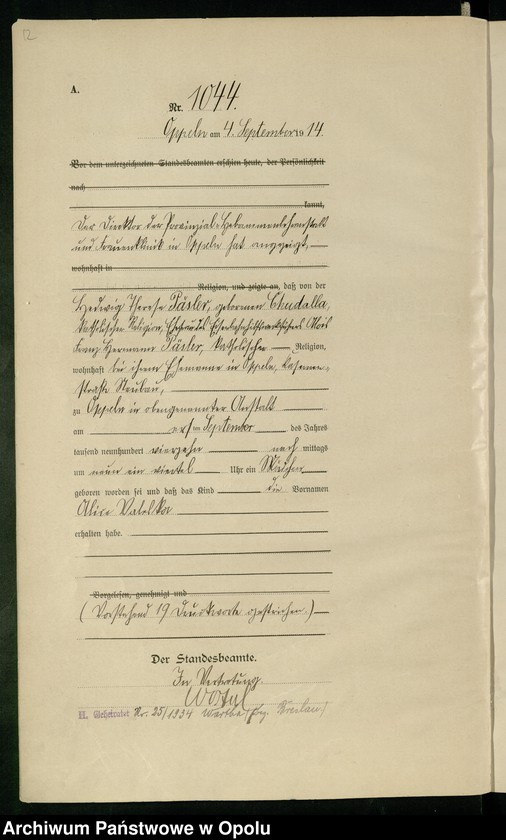 12
A.
Nr. 1044.
Oppeln am 4. September 19 14.
Vor dem unterzeichneten Standesbeamten erschien heute, der Persönlichkeit
nach
kannt,
Der Direktor der Provinzial-Hebammenlehranstalt
und Frauenklinik in Oppeln hat angezeigt,
wohnhaft in
Religion, und zeigte an, daß von der
Hedwig Therese Päsler, geborenen Chudalla,
katholischer Religion, Ehefrau des
Franz Hermann Päsler, katholischer Religion,
wohnhaft bei ihrem Ehemanne in Oppeln,
straße Neubau,
zu Oppeln in obengenannter Anstalt
am ersten September des Jahres
tausend neunhundert vierzehn nach mittags
um neun ein viertel Uhr ein Mädchen
geboren worden sei und daß das Kind die Vornamen
Alice Valeska
erhalten habe.
Vorgelesen, genehmigt und
(Vorstehend 19 Druckworte gestrichen.)
Der Standesbeamte.
In Vertretung.
H. Geheiratet Nr. 25/1934 Wartha (Bez. Breslau)
Archiwum Państwowe w Opolu